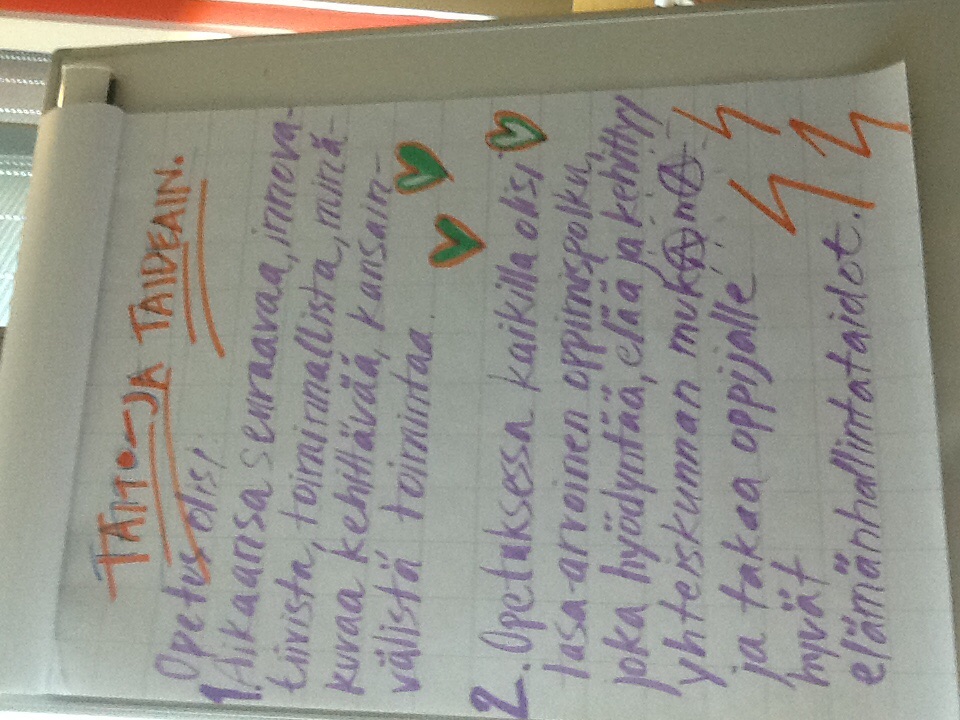 TAITO- JA TAIDEAIN.
Opetus olisi
1. Aikaansa seuraavaa, innova-
tiivista, toiminnallista, minä-
kuvaa kehittävää, kansain-
välistä toimintaa.
2. Opetuksessa kaikilla olisi
tasa-arvoinen oppimispolku,
joka hyödyntää, elää ja kehittyy
yhteiskunnan mukAnA
ja takaa oppijalle
hyvät
elämänhallintataidot.